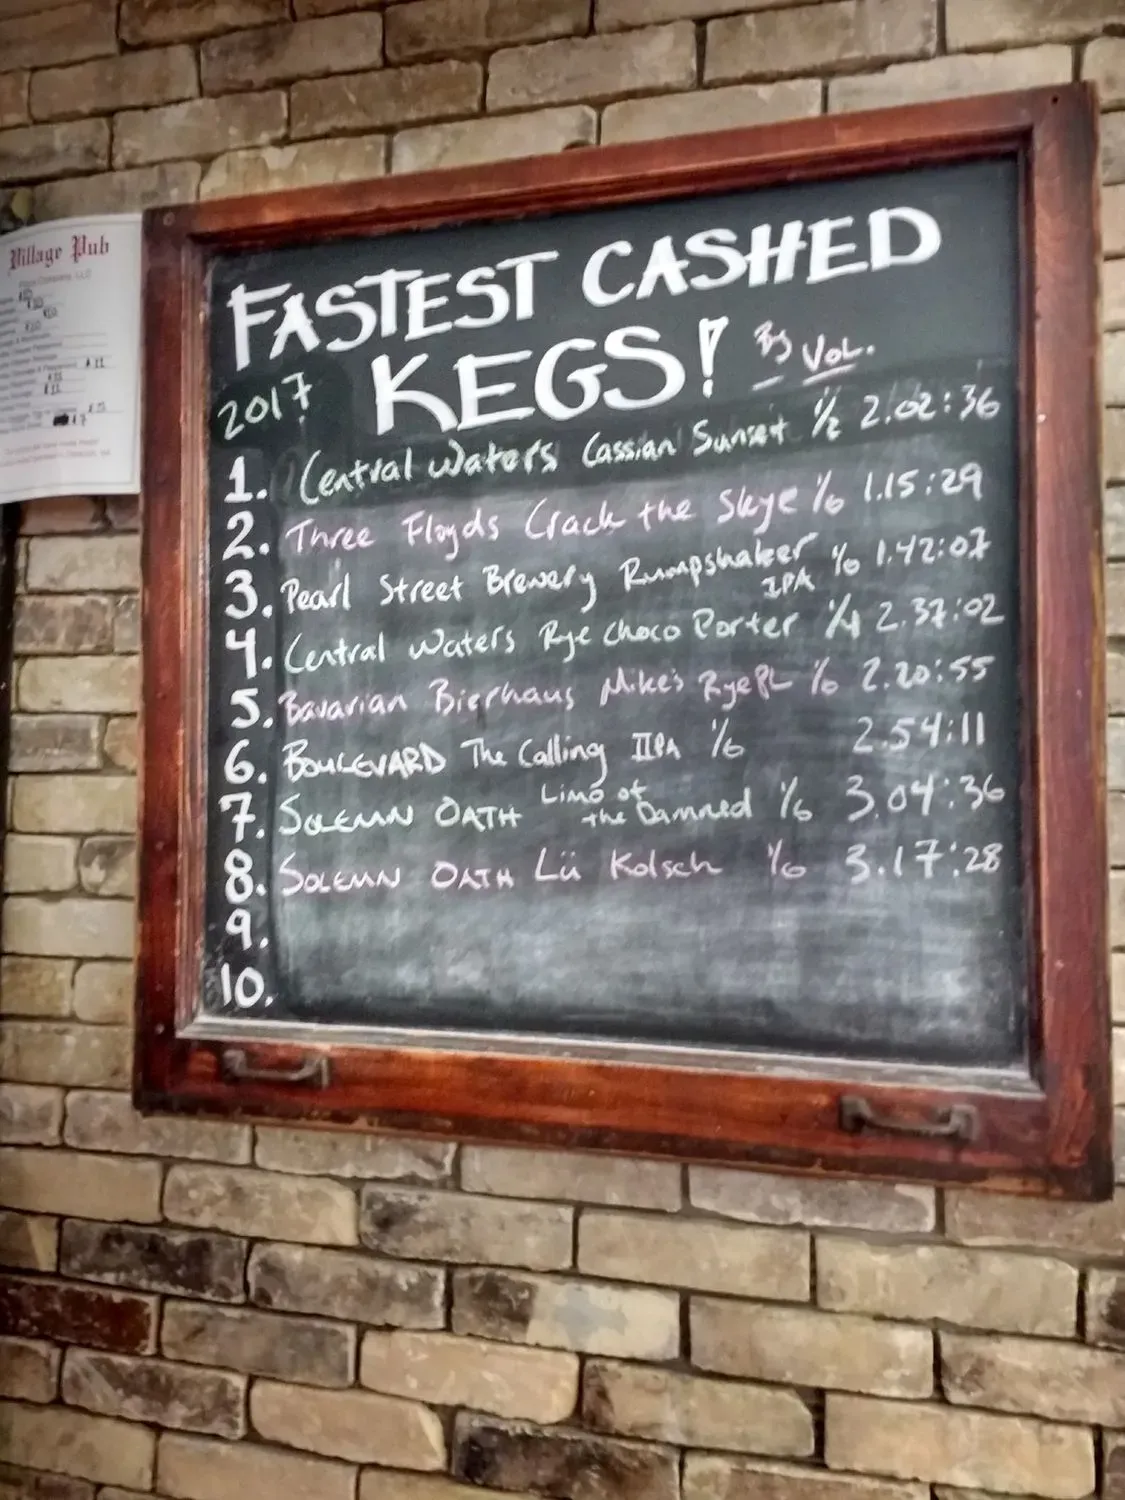 Village Pub
FASTEST CASHED
KEGS! By Vol.
2017
1. Central Waters Cassian Sunset 1/2 2.02:36
2. Three Floyds Crack the Skye 1/6 1.15:29
3. Pearl Street Brewery Rumpshaker IPA 1/6 1.42:07
4. Central Waters Rye Choco Porter 1/4 2.37:02
5. Bavarian Bierhaus Mike's Rye PL 1/6 2.20:55
6. BOULEVARD The Calling IIPA 1/6 2.54:11
7. SOLEMN OATH Limo of the Damned 1/6 3.04:36
8. SOLEMN OATH Lü Kolsch 1/6 3.17:28
9.
10.